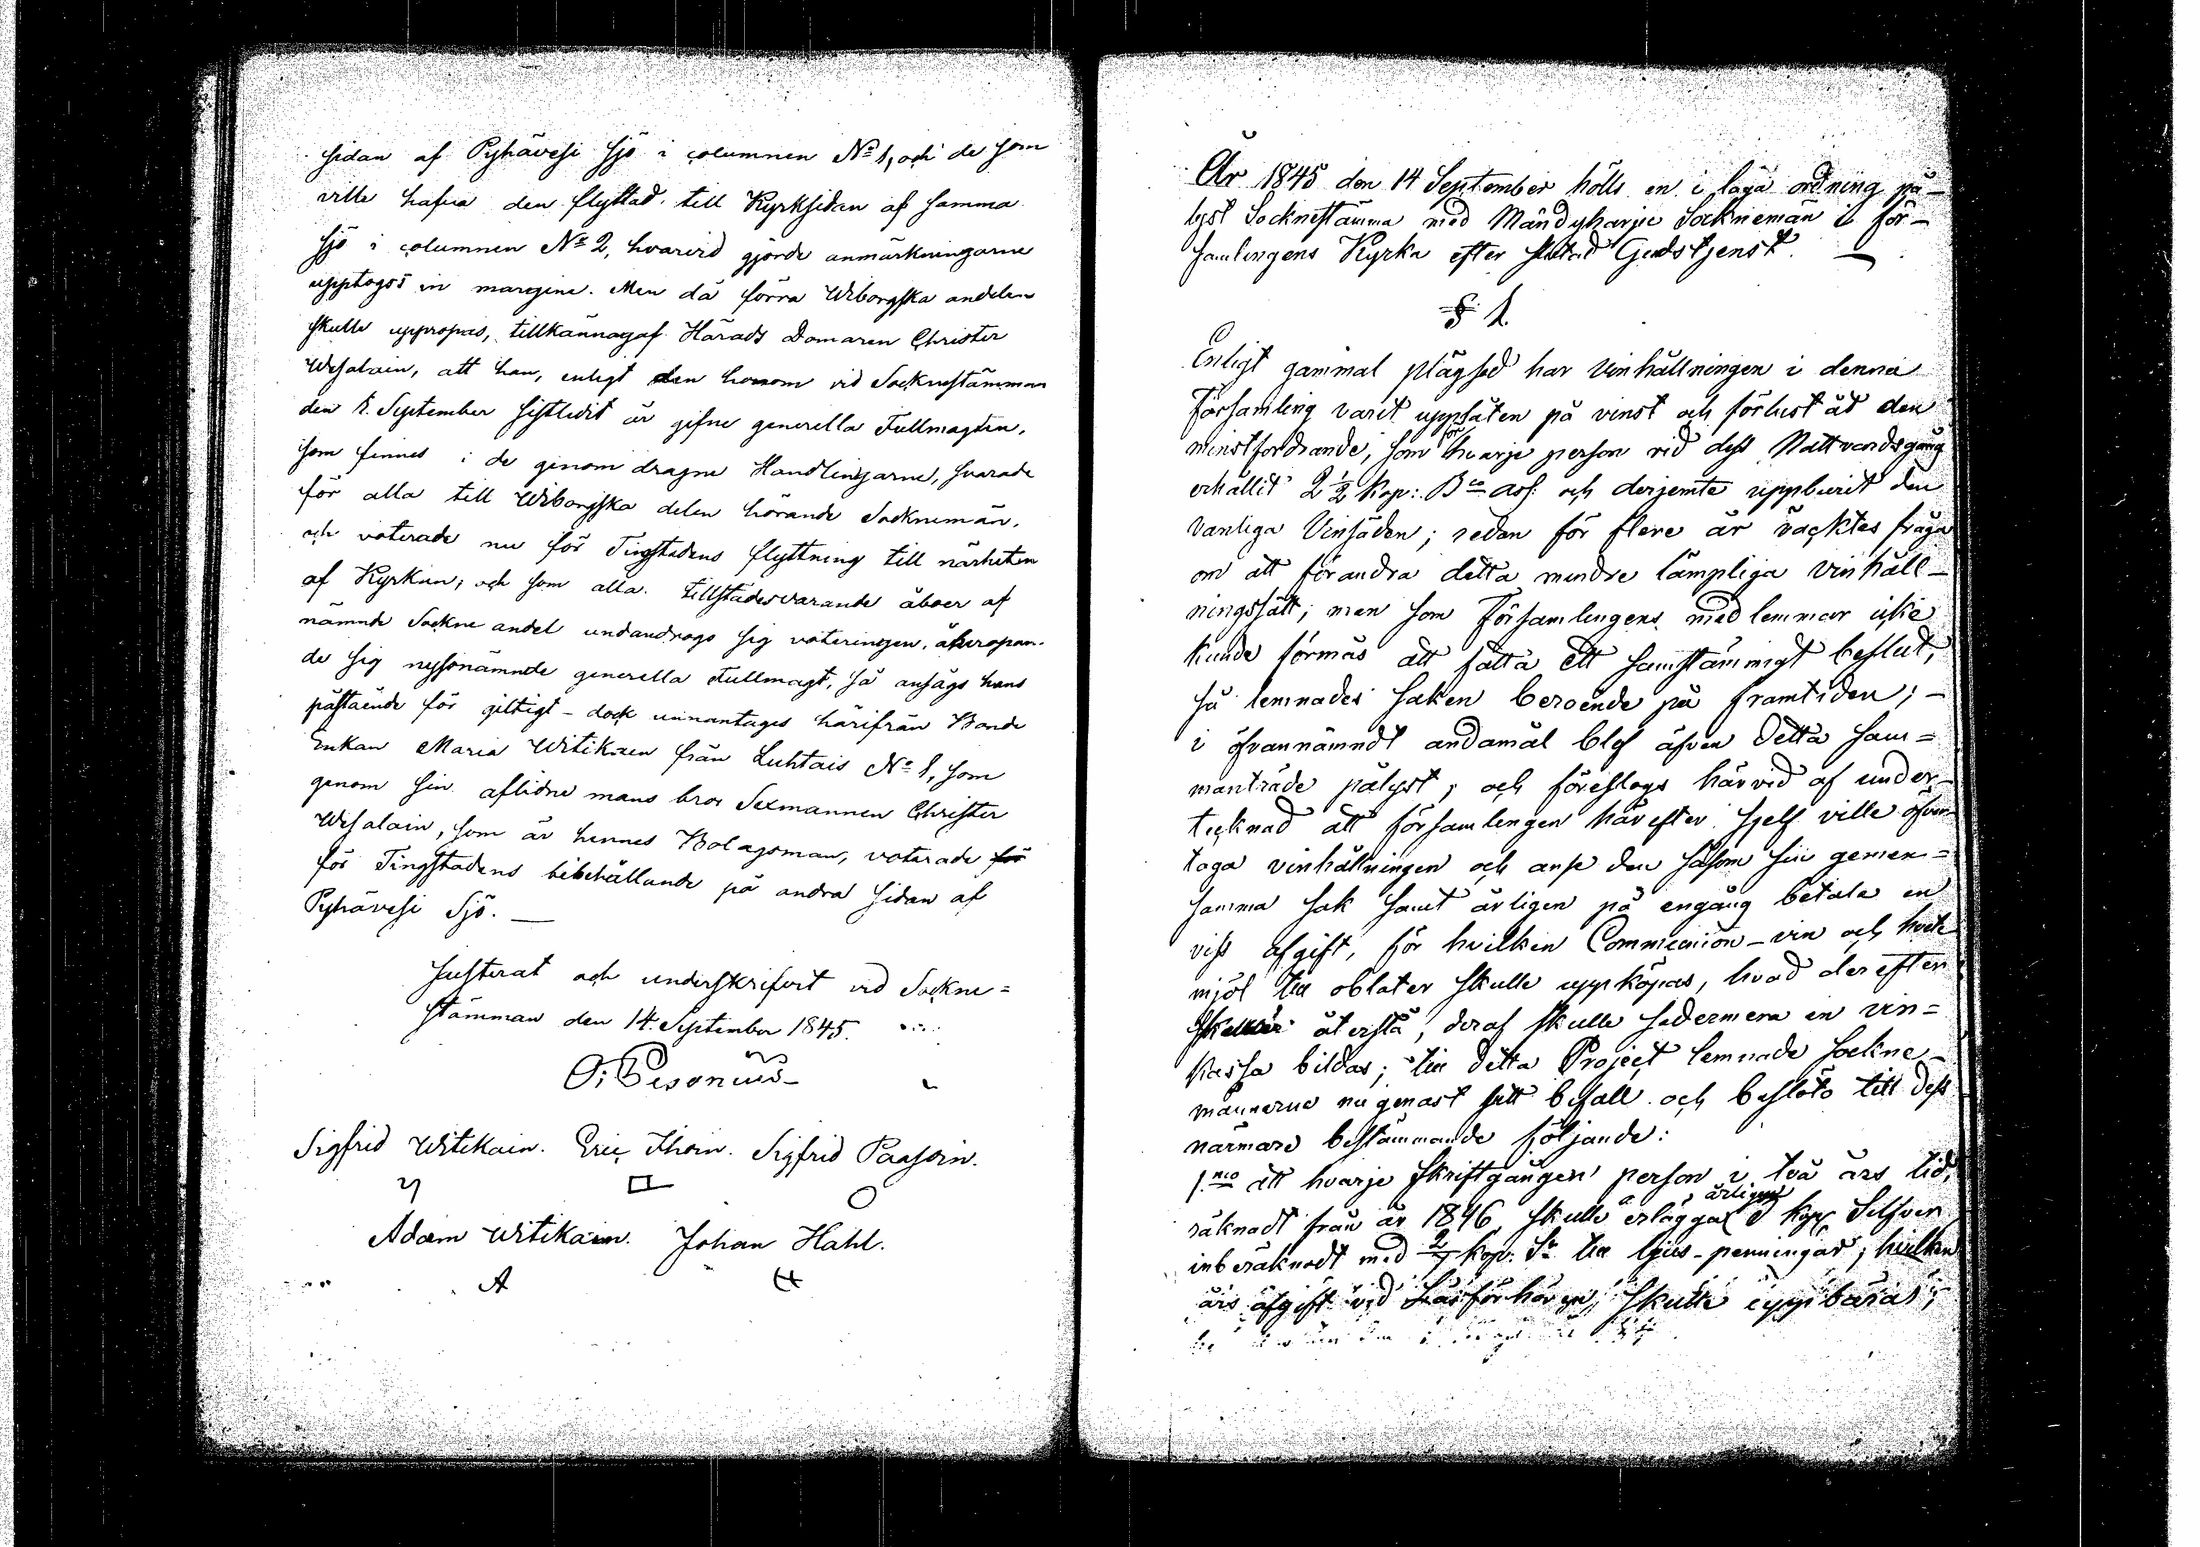 sidan af Pyhävesi sjö i columnen No 1, och de som
ville hafva den flyttad till Kyrksidan af samma
sjö i columnen No 2, hvarvid gjorde anmärkningarne
upptogos in margine. Men då förra Wiborgska andelen
skulle uppropas, tillkännagaf Härads Domaren Christer
Wesalain, att han, enligt den honom vid Sockenstämman
den 1. September sistledit år gifne generella Fullmagten,
som finnes i de genomdragne Handlingarne, svarade
för alla till Wiborgska delen hörande Socknemän,
och voterade nu för Tingstadens flyttning till närheten
af Kyrkan; och som alla tillstädesvarande åboer af
nämnde Sockne andel undandrogo sig voteringen, åberopan-
de sig nyssnämnde generella Fullmagt, så ansågs hans
påstående för giltigt – dock unnantages härifrån Bonde
Enkan Maria Witikain från Luhtais No 1, som
genom sin aflidne mans bror Sexmannen Christer
Wesalain, som är hennes Bolagsman, voterade för
för Tingstadens bibehållande på andra sidan af
Pyhävesi Sjö. —
Justerat och underskrifvit vid Sockne=
stämman den 14. September 1845.
O: Pesonius
Sigfrid Witikain. Eric Ihoin. Sigfrid Paasoin.
Adam Witikain. Johan Hahl.
A
År 1845 den 14 September hölls en i laga ordning på-
lyst Socknestämma med Mändyharjue Socknemän i för-
samlingens Kyrka efter slutad Gudstjenst. —
§ 1.
Enligt gammal plägsed har vinhållningen i denna
Församling varit upplåten på vinst och förlust åt den
minstfordrande, som för hvarje person vid dess Nattvardsgång
erhållit 2½ kop: Bco ass: och derjemte uppburit den
vanliga Vinsäden; redan för flere år väcktes fråga
om att förändra detta mindre lämpliga vinhåll-
ningssätt; men som Församlingens medlemmar icke
kunde förmås att fatta ett samstämmigt beslut,
så lemnades saken beroende på framtiden; –
i ofvannämndt ändamål blef äfven detta sam=
manträde pålyst; och föreslogs härvid af under-
tecknad att församlingen härefter sjelf ville öfver-
taga vinhållningen och anse den såsom sin gemen=
samma sak samt årligen på engång betala en
viss afgift, för hvilken Communion-vin och hvete
mjöl till oblater skulle uppköpas, hvad derefter
återstå, deraf skulle sedermera en vin=
kassa bildas; till detta Project lemnade sockne-
männerne nu genast sitt bifall och beslöto till dess
närmare bestämmande följande:
1.mo att hvarje skriftgången person i två års tid,
räknadt från år 1846, skulle erlägga årligen kop Silfver
inberäknadt med 2/7 kop. Sr till ljus-penningar, hvilken
års afgift vid Läsförhören skulle uppbäras;